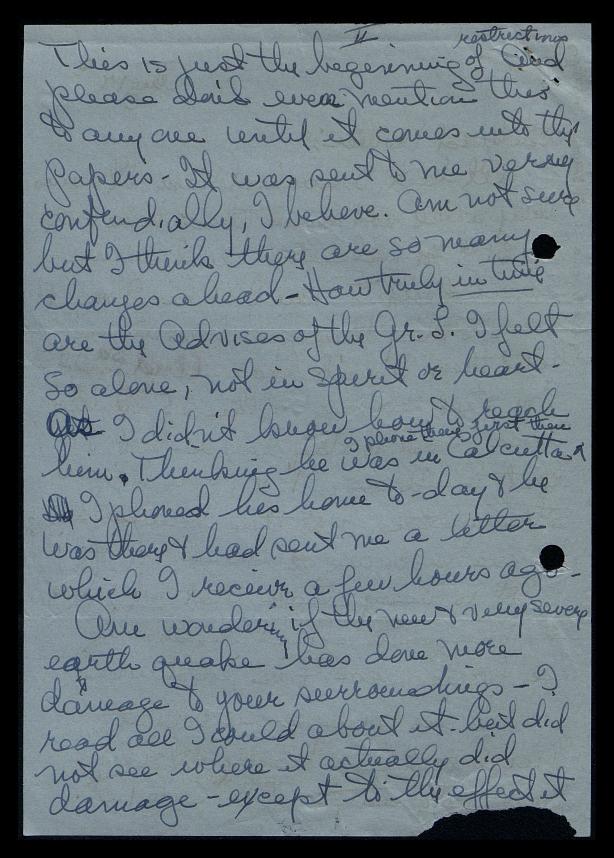 II
restrictions
This is just the beginning of and
please don't even mention this
to anyone until it comes into the
papers - It was sent to me verey
confendially, I believe. am not sure
but I think there are so many
changes ahead - How truly in time
are the Advises of the Gr. L. I felt
so alone, not in spirit or heart -
I didn't know how to reach
I phone there first then
him. Thinking he was in Calcutta
I phoned his home to-day & he
was there & had sent me a letter
which I receive a few hours ago -
Am wondering if the new & very severe
earth quake has done more
damage to your surroundings - I
read all I could about it - but did
not see where it actually did
damage - except to the effect it